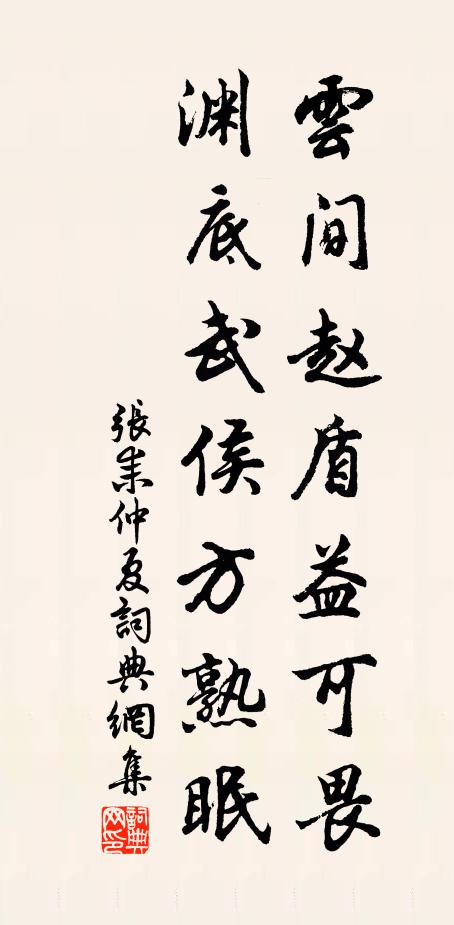 雲間赵盾益可畏
渊底武侯方熟眠
張耒仲夏詞典網集
詞典网印